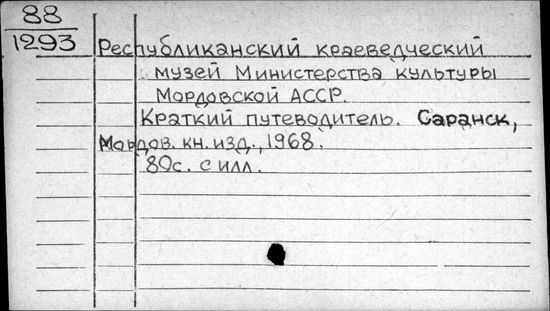 88
1293
Республиканский краеведческий
музей Министерства культуры
Мордовской АССР.
Краткий путеводитель. Саранск,
Мордов. кн. изд., 1968.
80с. с илл.